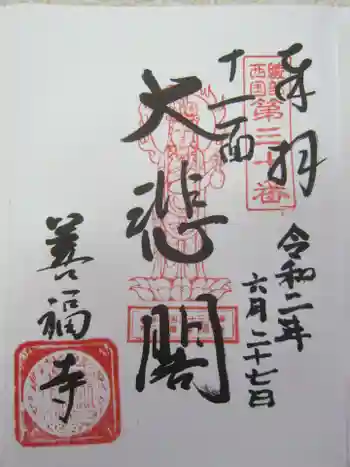 奉拝
西国
第三十番
十一面
大悲閣
令和二年
六月二十七日
善福寺